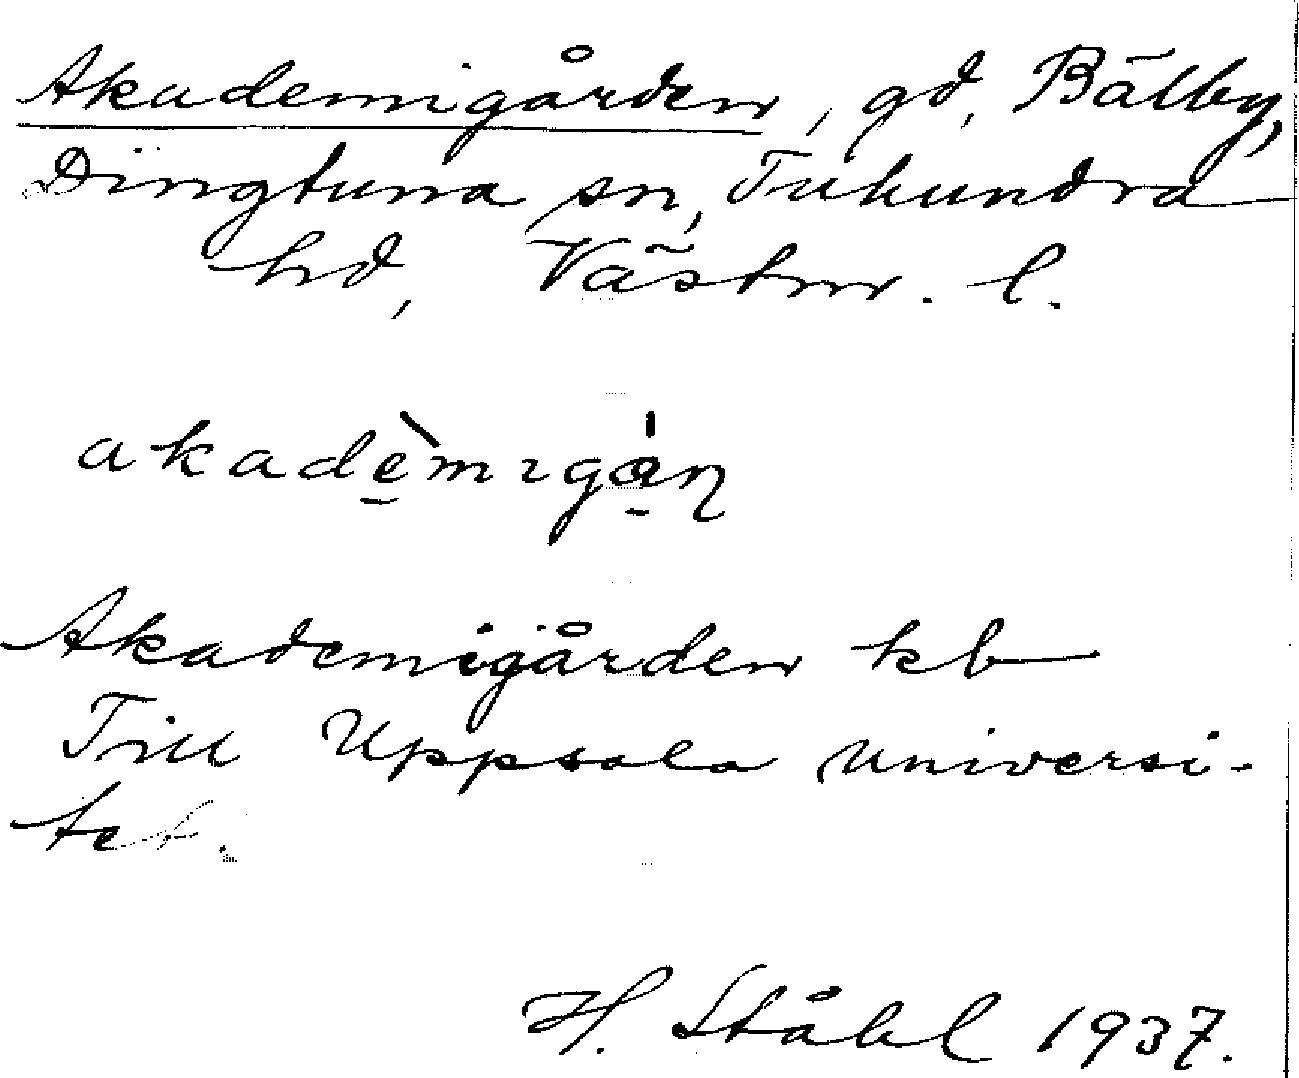 Akademigården, gd, Bälby,
Dingtuna sn, Tuhundra
hd, Västm. l.
akadèmigán
Akademigården kb
Till Uppsala universi-
tet.
H. Ståhl 1937.